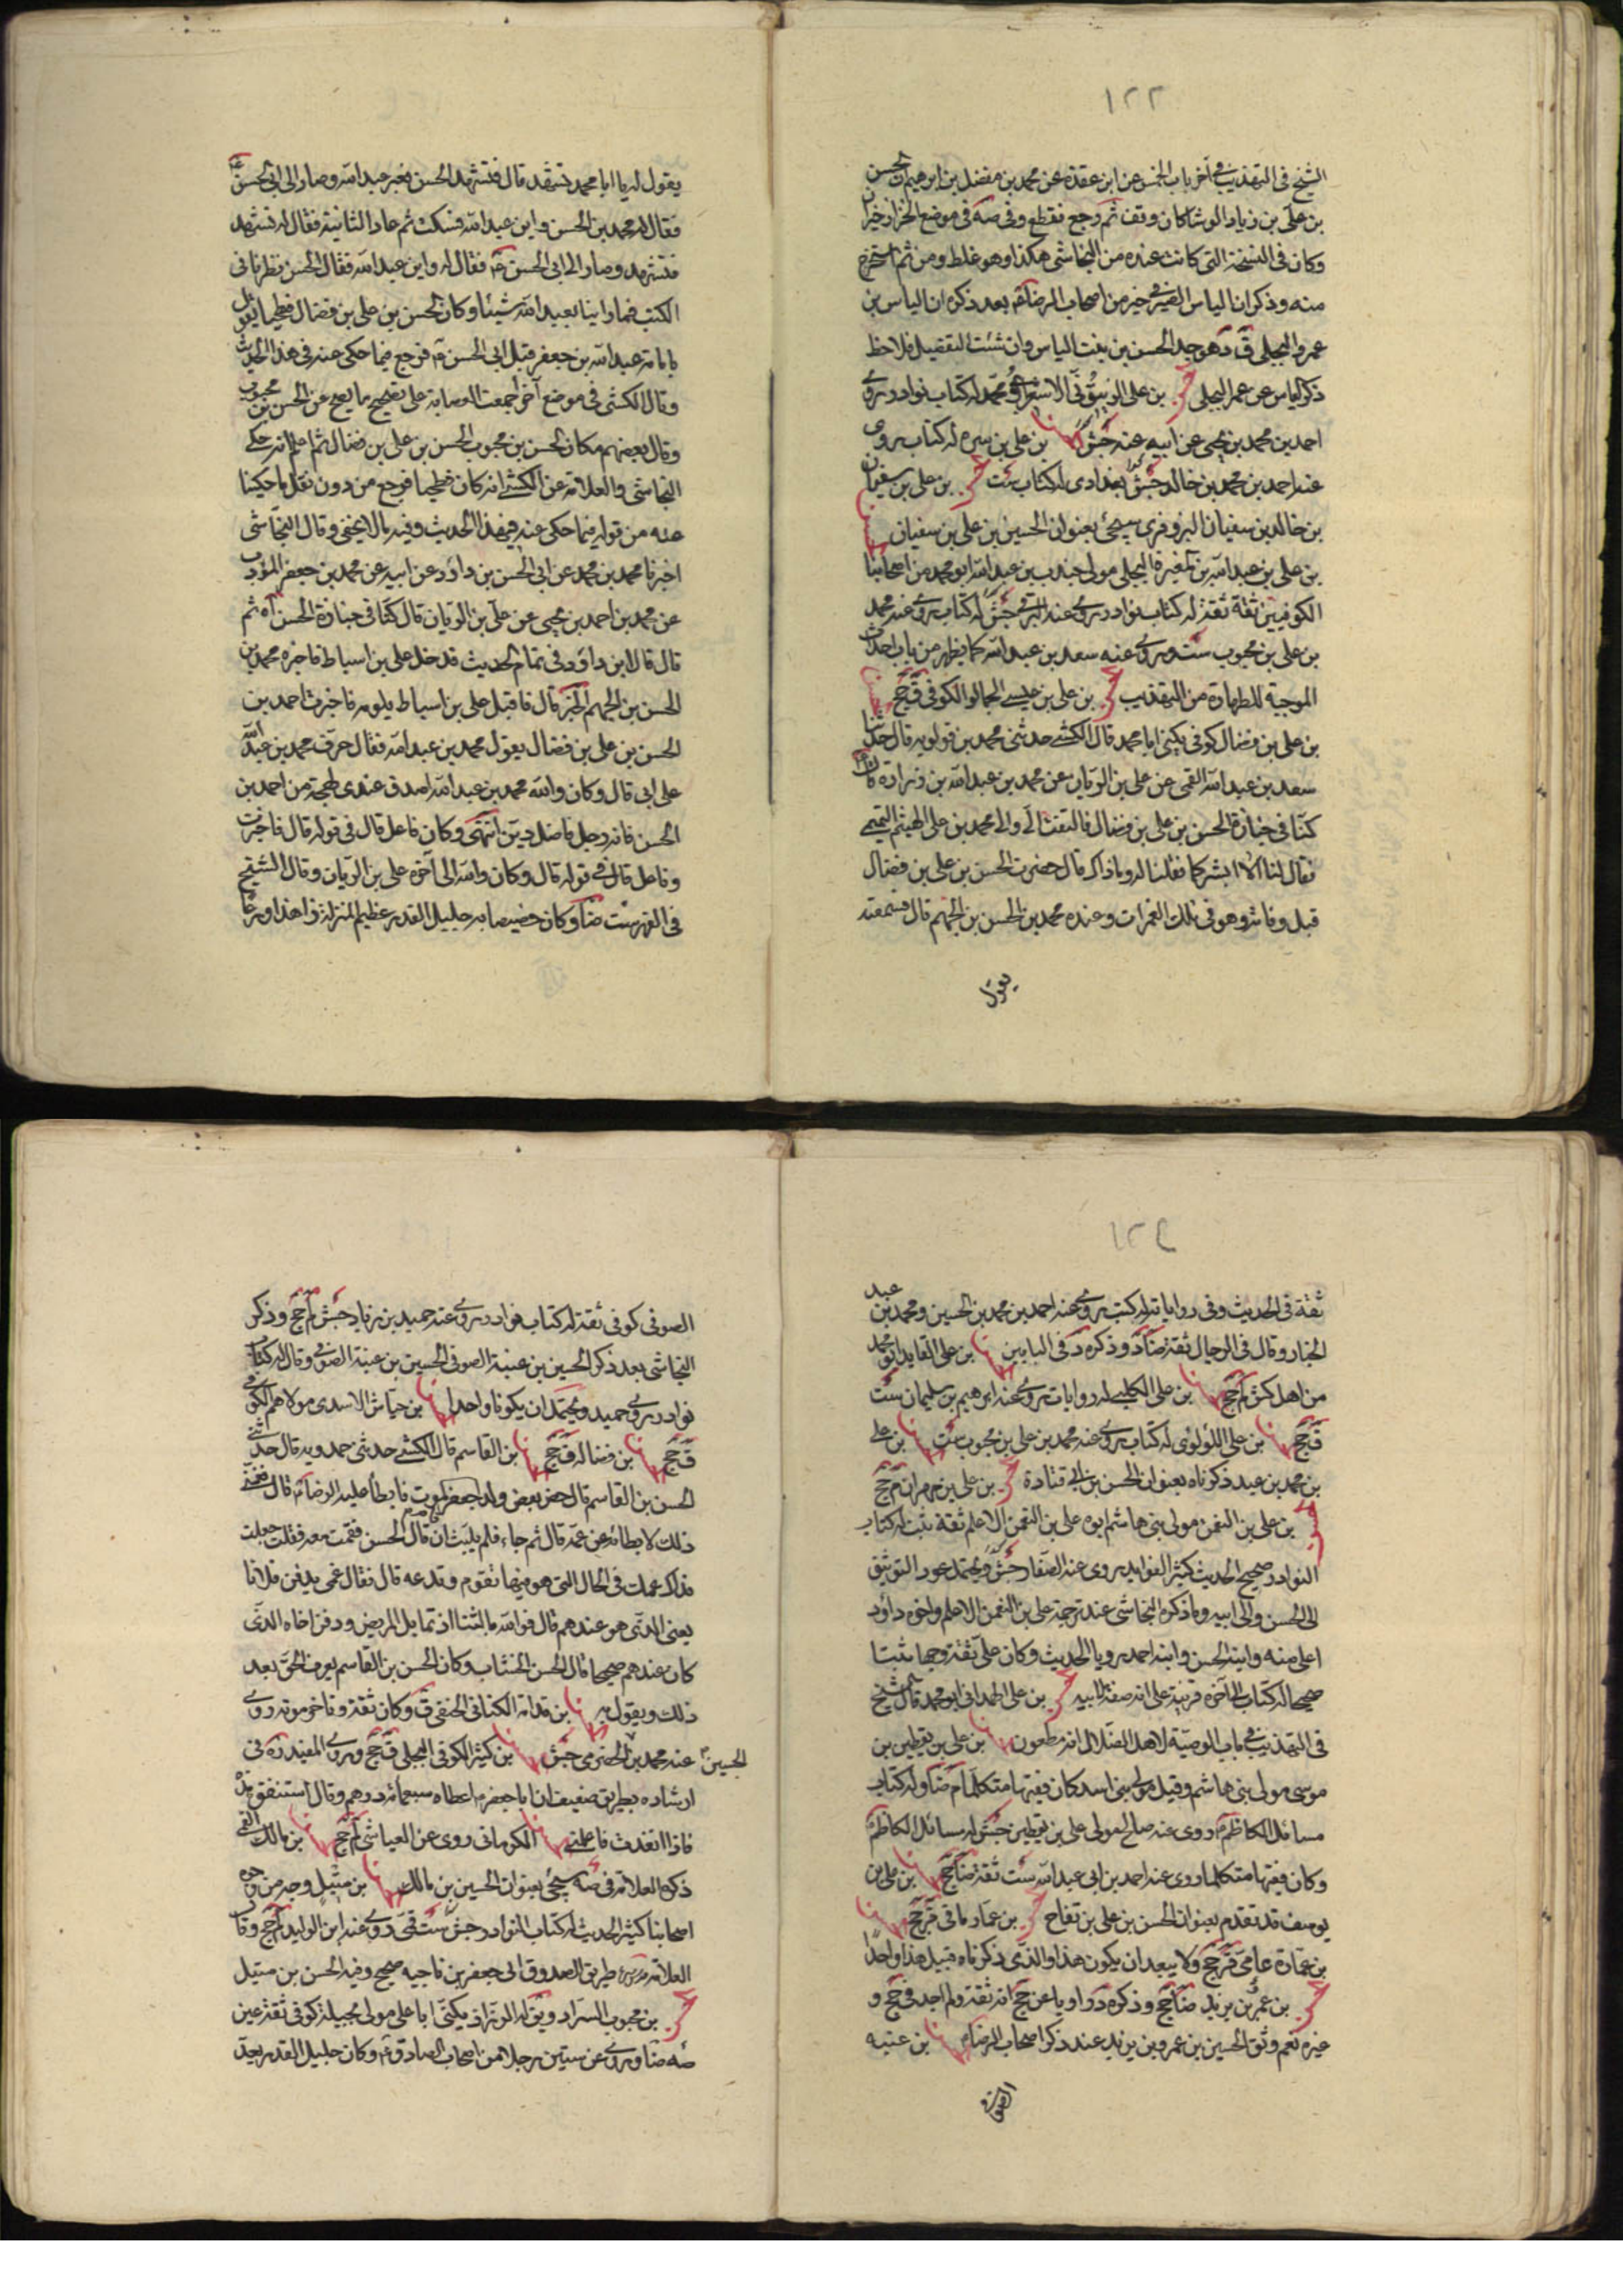 ١٢٢
الشيخ في التهذيب في آخر باب الخمس عن ابن عقدة عن محمد بن مفضل بن ابرهيم ان الحسن
بن علي بن زياد الوشا كان وقف ثم رجع فقطع وفي صه في موضع الخزاز خيران
وكان في النسخة التي كانت عنده من النجاشي هكذا وهو غلط ومن ثم استخرج
منه وذكر ان الياس الصيرفي خير من اصحاب الرضا ع بعد ذكره ان الياس بن
عمرو البجلي ق د هو جد الحسن بن بنت الياس وان شئت التفصيل فلاحظ
ذكر الياس عن عمر البجلي بن علي الزيتوني الاشعري ابو محمد له كتاب نوادر روى
احمد بن محمد بن يحيى عن ابيه عنه جش بن علي بن سبره له كتاب يروى
عنه احمد بن محمد بن خالد جش بغدادى له كتاب ست بن علي بن سفيان
بن خالد بن سفيان البزوفرى سيجئ بعنوان الحسين بن علي بن سفيان
بن علي بن عبد الله بن المغيرة البجلي مولى جندب بن عبد الله ابو محمد من اصحابنا
الكوفيين ثقة ثقة له كتاب نوادر روى عنه البرقي جش له كتاب روى عنه محمد
بن علي بن محبوب ست وروى عنه سعد بن عبد الله كما يظهر من باب احداث
الموجبة للطهارة من التهذيب بن علي بن عيسى الجمالوا الكوفي ق جخ
بن علي بن فضال كوفي يكنى ابا محمد قال الكشي حدثني محمد بن قولويه قال حدثنا
سعد بن عبد الله القمي عن علي بن الريان عن محمد بن عبد الله بن زرارة قال
كنا في جنازة الحسن بن علي بن فضال فالتفت الي والى محمد بن علي الهيثم التميمي
فقال لنا الا ابشركما فقلنا له وما ذاك قال حضرت الحسن بن علي بن فضال
قبل وفاته وهو في تلك الغمرات وعنده محمد بن الحسن بن الجهم قال فسمعته
يقول
يقول له يا ابا محمد تشهد قال فتشهد الحسن فعبر عبد الله وصار الى ابى الحسن ع
فقال له محمد بن الحسن واين عبد الله فسكت ثم عاد الثانية فقال له تشهد
فتشهد وصار الى ابى الحسن ع فقال له واين عبد الله فقال الحسن نظرنا في
الكتب فما راينا لعبد الله شيئا وكان الحسن بن علي بن فضال فطحيا يقول
بامامة عبد الله بن جعفر قبل ابى الحسن ع فرجع فيما حكى عنه في هذا الحديث
وقال الكشي في موضع آخر اجمعت العصابة على تصحيح ما يصح عن الحسن بن محبوب
وقال بعضهم مكان الحسن بن محبوب الحسن بن علي بن فضال ثم اعلم انه حكى
النجاشي والعلامة عن الكشي انه كان فطحيا فرجع من دون نقل ما حكينا
عنه من قوله فيما حكى عنه في هذا الحديث وفيه ما لا يخفى وقال النجاشي
اخبرنا محمد بن محمد عن ابى الحسن بن داود عن ابيه عن محمد بن جعفر المؤدب
عن محمد بن احمد بن يحيى عن علي بن الريان قال كنا في جنازة الحسن آه ثم
قال قال ابن داود في تمام الحديث فدخل علي بن اسباط فاخبره محمد بن
الحسن بن الجهم الخبر قال فاقبل علي بن اسباط يلومه فاخبرت احمد بن
الحسن بن علي بن فضال بقول محمد بن عبد الله فقال حرف محمد بن عبد الله
على ابى قال وكان والله محمد بن عبد الله اصدق عندى لهجة من احمد بن
الحسن فانه رجل فاضل دين انتهى وكان فاعل قال في قوله قال فاخبرت
وفاعل قال في قوله قال وكان والله الى آخره علي بن الريان وقال الشيخ
في الفهرست ضا وكان خصيصا به جليل القدر عظيم المنزلة زاهدا ورعا
١٢٤
ثقة في الحديث وفي رواياته له كتب روى عنه احمد بن محمد بن الحسين ومحمد بن عبد
الجبار وقال في الرجال ثقة ضا د وذكره د في البابين بن علي القايد ابو محمد
من اهل كش لم جخ بن علي الكلبي له روايات روى عنه ابرهيم بن سليمان ست
ق جخ بن علي اللؤلؤى له كتاب روى عنه محمد بن علي بن محبوب ست بن علي
بن محمد بن عبد ذكرناه بعنوان الحسن بن ابى قتادة بن علي بن مهران م جخ
بن علي بن النعمن مولى بنى هاشم ابوه علي بن النعمن الاعلم ثقة ثبت له كتاب
النوادر صحيح الحديث كثير الفوايد يروى عنه الصفار جش ويحتمل عود التوثيق
الى الحسن والى ابيه وما ذكره النجاشي عند ترجمة علي بن النعمن الاعلم واخوه داود
اعلى منه وابنه الحسن وابنه احمد رويا الحديث وكان علي ثقة وجها ثبتا
صحيحا له كتاب الى آخره قرينة على انه صفة لابيه بن علي الهمداني ابو محمد قال الشيخ
في التهذيب في باب الوصية لاهل الضلال انه مطعون بن علي بن يقطين بن
موسى مولى بنى هاشم وقيل مولى بنى اسد كان فقيها متكلما م ضا وله كتاب
مسائل الكاظم ع روى عنه صالح مولى علي بن يقطين جش له مسائل الكاظم ع
وكان فقيها متكلما روى عنه احمد بن ابى عبد الله ست ثقة ضا جخ بن علي بن
يوسف قد تقدم بعنوان الحسن بن علي بن بقاح بن عمار ما في ق جخ
بن عمارة عامي ق جخ ولا يبعد ان يكون هذا والذى ذكرناه قبيل هذا واحدا
بن عمر بن يزيد ضا جخ وذكره د راويا عن جخ انه ثقة ولم اجد في جخ و
غيره نعم وثق الحسين بن عمرو بن يزيد عند ذكر اصحاب الرضا ع بن عتبه
الصوفي
الصوفي كوفي ثقة له كتاب نوادر روى عنه حميد بن زياد جش لم جخ وذكر
النجاشي بعد ذكر الحسين بن عنبة الصوفي الحسين بن عنبة الصوفي وقال له كتاب
نوادر روى حميد ويحتمل ان يكونا واحدا بن حياش الاسدى مولاهم الكوفي
ق جخ بن فضاله ق جخ بن القاسم قال الكشي حدثني حمدويه قال حدثني
الحسن بن القاسم قال حضر بعض ولد جعفر الموت فابطأ عليه الرضا ع قال فغمني
ذلك لابطائه عن عمه قال ثم جاء فلم يلبث ان قام قال الحسن فقمت معه فقلت جعلت
فداك عمك في الحال التي هو فيها تقوم وتدعه قال فقال عمي يدفن فلانا
يعني الذى هو عندهم قال فوالله ما لبثنا ان تماثل المريض ودفن اخاه الذى
كان عندهم صحيحا قال الحسن الخشاب وكان الحسن بن القاسم يعرف الحق بعد
ذلك ويقول به بن قدامة الكناني الحنفي ق وكان ثقة وتاخر موته روى
عنه محمد بن الحضرمي جش بن كثير الكوفي البجلي ق جخ وروى المفيد ره في
الحسين
ارشاده بطريق ضعيف ان ابا جعفر ع اعطاه سبعمائة درهم وقال استنفق هذه
فاذا انفذت فاعلمني الكرماني روى عن العياشي لم جخ بن مالك القمي
ذكره العلامة في صه سيجئ بعنوان الحسين بن مالك بن متيل وجه من وجوه
اصحابنا كثير الحديث له كتاب النوادر جش ست قمي روى عنه ابن الوليد لم جخ وقال
العلامة طريق الصدوق الى جعفر بن ناجيه صحيح وفيه الحسن بن متيل
بن محبوب السراد ويق له الزراد يكنى ابا علي مولى بجيلة كوفي ثقة عين
صه ضا وروى عن ستين رجلا من اصحاب الصادق ع وكان جليل القدر يعد